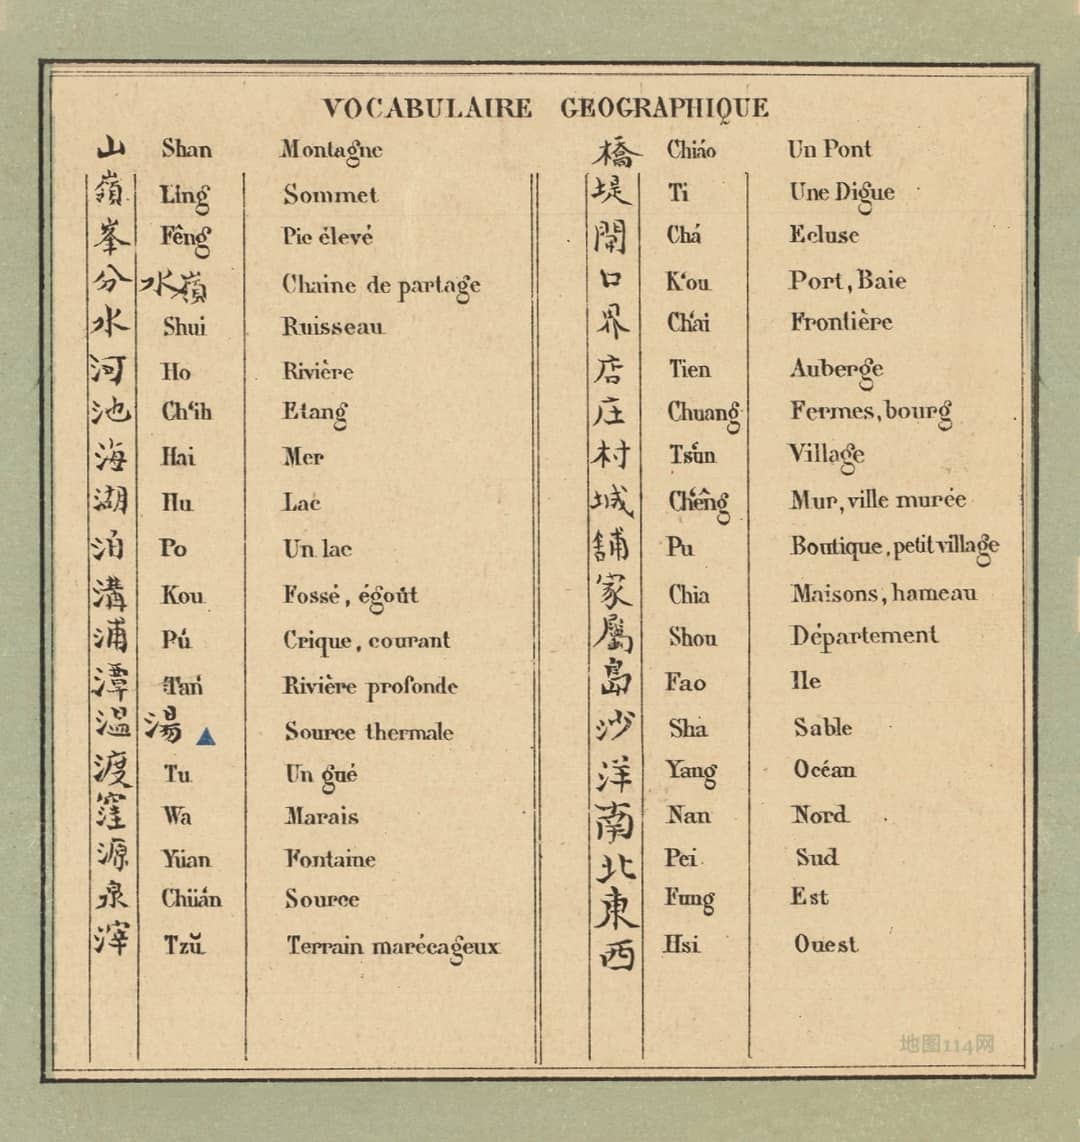 VOCABULAIRE GEOGRAPHIQUE
山 Shan Montagne
嶺 Ling Sommet
峯 Fêng Pic élevé
分水嶺 Chaine de partage
水 Shui Ruisseau
河 Ho Rivière
池 Ch'ih Etang
海 Hai Mer
湖 Hu Lac
泊 Po Un lac
溝 Kou Fossé, égoût
浦 Pú Crique, courant
潭 Tań Rivière profonde
温湯 Source thermale
渡 Tu Un gué
窪 Wa Marais
源 Yüan Fontaine
泉 Chüán Source
滓 Tzŭ Terrain marécageux
橋 Chiáo Un Pont
堤 Ti Une Digue
閘 Chá Ecluse
口 K'ou Port, Baie
界 Ch'ai Frontière
店 Tien Auberge
庄 Chuang Fermes, bourg
村 Tsún Village
城 Ch'êng Mur, ville murée
舖 Pu Boutique, petit village
家 Chia Maisons, hameau
屬 Shou Département
島 Fao Ile
沙 Sha Sable
洋 Yang Océan
南 Nan Nord
北 Pei Sud
東 Fung Est
西 Hsi Ouest
地图114网